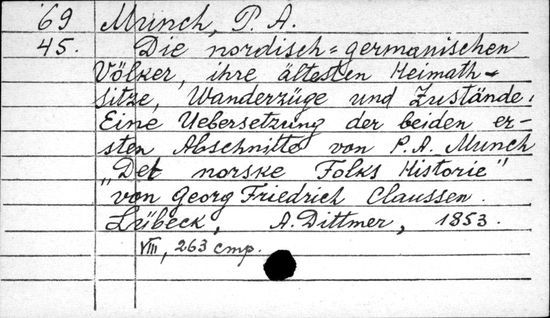 69 Munch, P. A.
45. Die nordisch=germanischen
Völker, ihre ältesten Heimath-
sitze, Wanderzüge und Zustände:
Eine Uebersetzung der beiden er-
sten Abschnitte von P. A. Munch
„Det norske Folks Historie"
von Georg Friedrich Claussen.
Lübeck, A. Dittmer, 1853.
VIII, 263 стр.